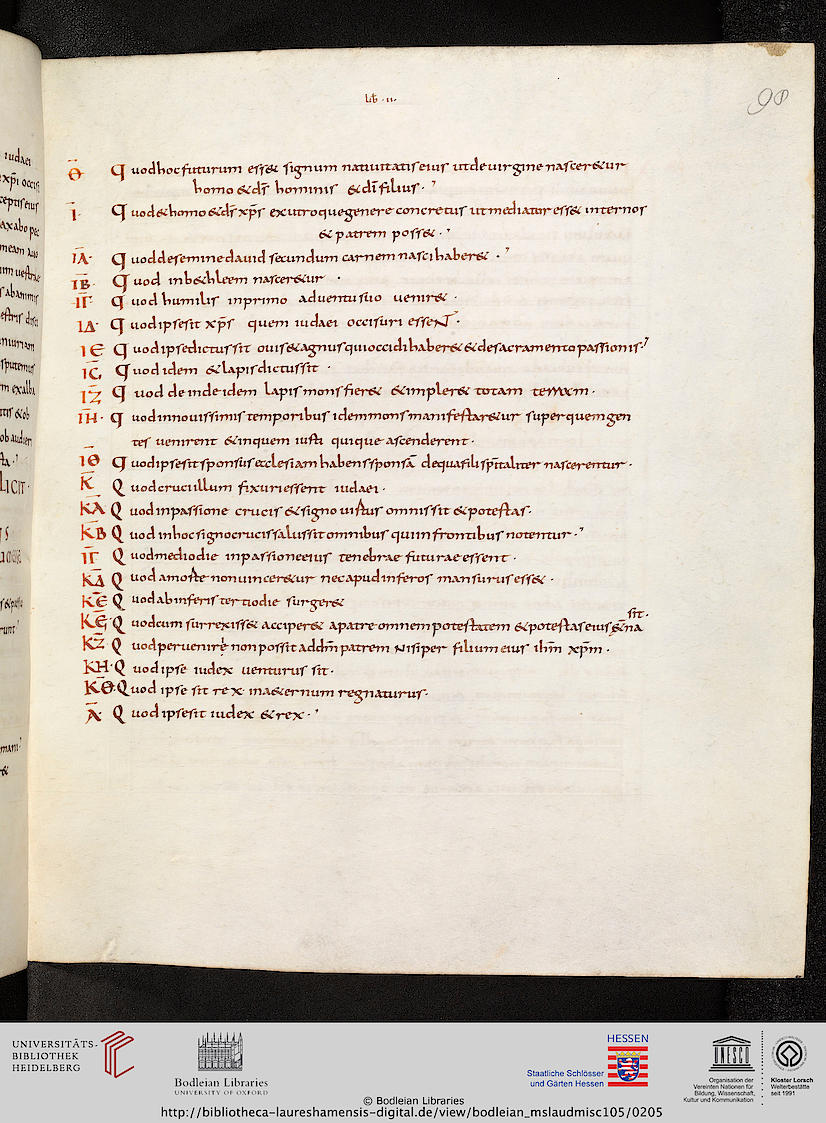 Lib · II ·
98
Θ Quod hoc futurum ess& signum natiuitatis eius ut de uirgine nascer&ur
homo & ds̄ hominis & dī filius ·
I · Quod & homo & ds̄ xp̄s ex utroque genere concretus ut mediator ess& inter nos
& patrem poss& ·
IA · Quod de semine dauid secundum carnem nasci haber& ·
IB · Quod in b&hleem nascer&ur ·
IΓ · Quod humilis in primo aduentu suo uenir& ·
IΔ · Quod ipse sit xp̄s quem iudaei occisuri essent ·
IE Quod ipse dictus sit ouis & agnus qui occidi haber& & de sacramento passionis ·
IϚ Quod idem & lapis dictus sit ·
IZ Quod deinde idem lapis mons fier& & impler& totam terram ·
IH · Quod in nouissimis temporibus idem mons manifestar&ur super quem gen
tes uenirent & in quem iusti quique ascenderent ·
IΘ Quod ipse sit sponsus ecclesiam habens sponsā de qua filii sp̄italiter nascerentur ·
K Quod cruci illum fixuri essent iudaei ·
KA Quod in passione crucis & signo uirtus omnis sit & potestas ·
KB Quod in hoc signo crucis salus sit omnibus qui in frontibus notentur ·
IΓ Quod medio die in passione eius tenebrae futurae essent ·
KΔ Quod a morte non uincer&ur nec apud inferos mansurus ess& ·
KE Quod ab inferis tertio die surger&
sit ·
KϚ · Quod cum surrexiss& acciper& a patre omnem potestatem & potestas eius &̄na
KZ · Quod perueniri non possit ad dm̄ patrem nisi per filium eius ihm̄ xpm̄ ·
KH · Quod ipse iudex uenturus sit ·
KΘ · Quod ipse sit rex in a&ernum regnaturus ·
Λ Quod ipse sit iudex & rex ·
iudaei
LICIT ·
UNIVERSITÄTS-
BIBLIOTHEK
HEIDELBERG
Bodleian Libraries
UNIVERSITY OF OXFORD
HESSEN
Staatliche Schlösser
und Gärten Hessen
UNESCO
Organisation der
Vereinten Nationen für
Bildung, Wissenschaft,
Kultur und Kommunikation
Kloster Lorsch
Welterbestätte
seit 1991
© Bodleian Libraries
http://bibliotheca-laureshamensis-digital.de/view/bodleian_mslaudmisc105/0205